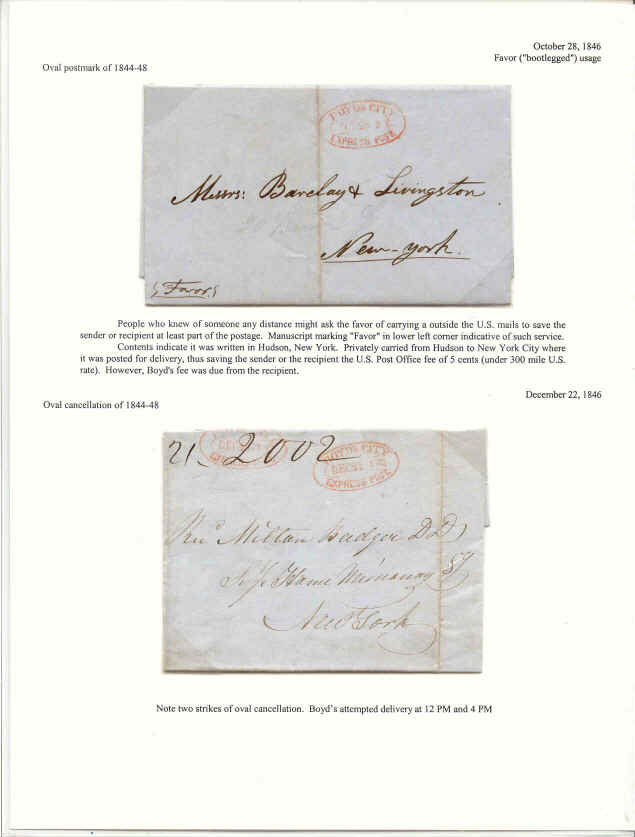 October 28, 1846
Favor ("bootlegged") usage
Oval postmark of 1844-48
BOYD'S CITY
EXPRESS POST
Messrs: Barclay & Livingston
New-york.
Favor
People who knew of someone any distance might ask the favor of carrying a outside the U.S. mails to save the
sender or recipient at least part of the postage. Manuscript marking "Favor" in lower left corner indicative of such service.
Contents indicate it was written in Hudson, New York. Privately carried from Hudson to New York City where
it was posted for delivery, thus saving the sender or the recipient the U.S. Post Office fee of 5 cents (under 300 mile U.S.
rate). However, Boyd's fee was due from the recipient.
December 22, 1846
Oval cancellation of 1844-48
21. 2002
BOYD'S CITY
EXPRESS POST
Rev Milton Badger DD
Home
New York
Note two strikes of oval cancellation. Boyd's attempted delivery at 12 PM and 4 PM